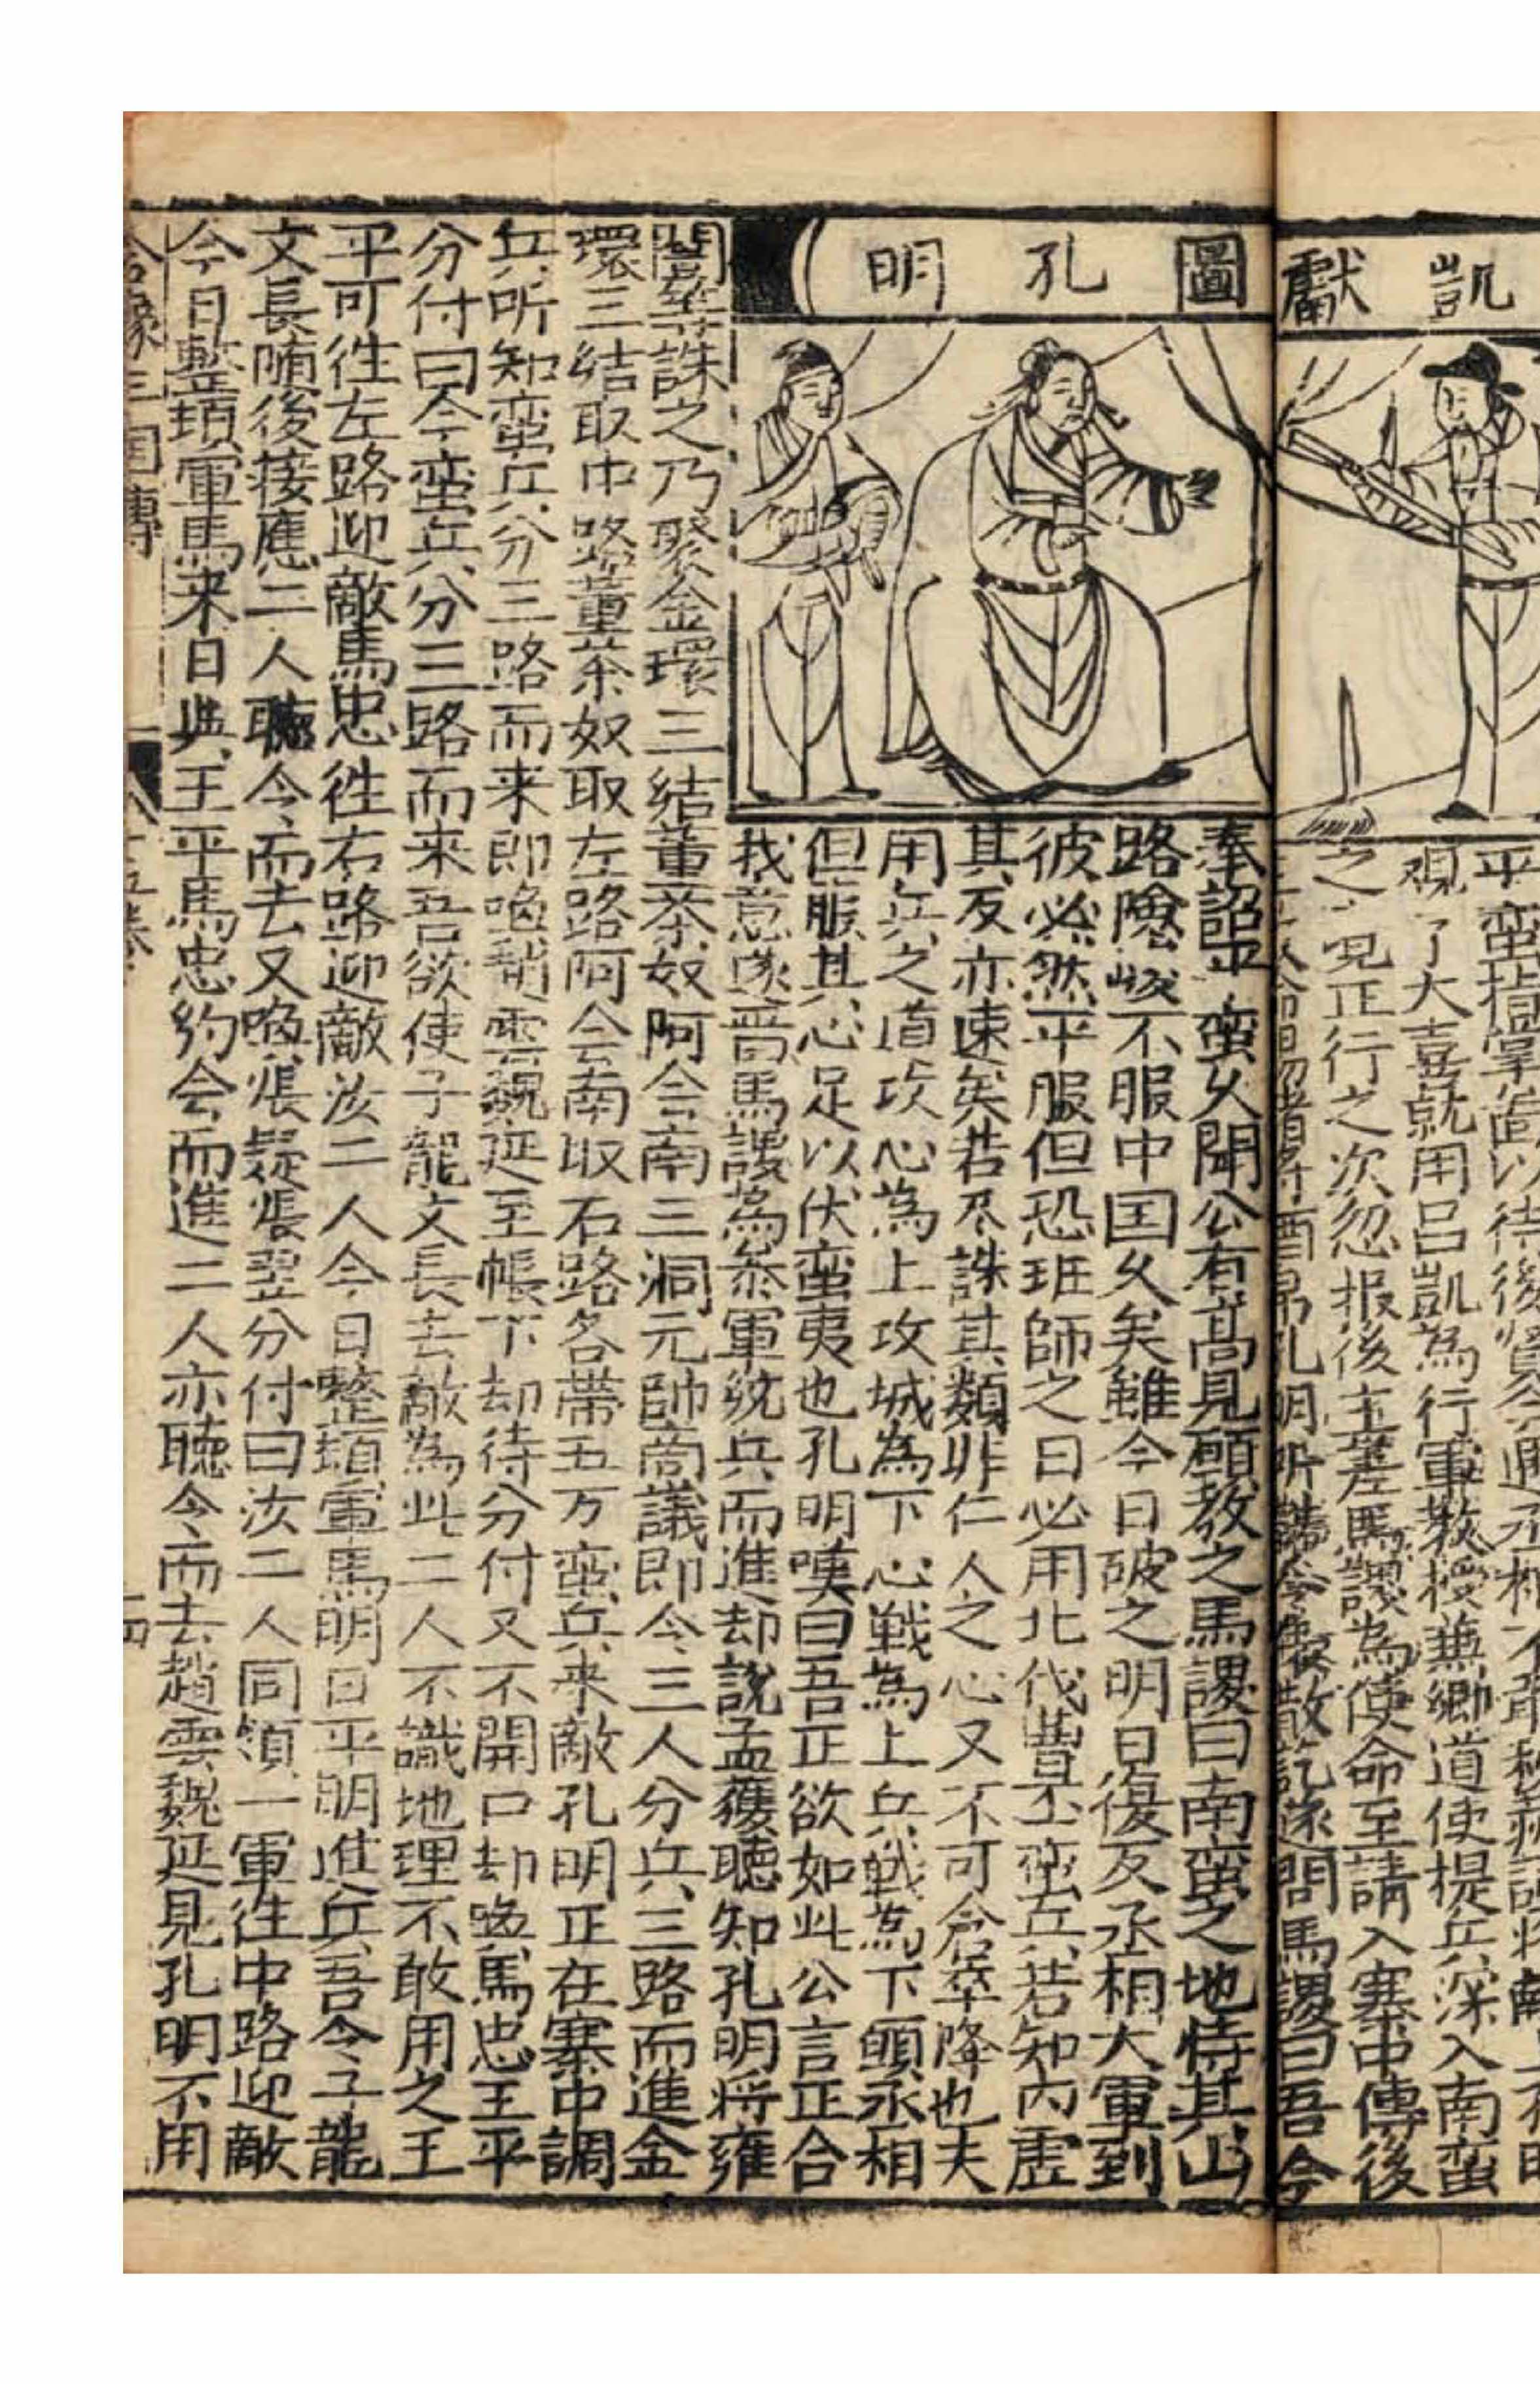 凱獻
平蛮指掌畣以待後
覌了大喜就用吕凱為行軍教授兼鄉道使提兵深入南蛮
之正行之次忽报後主差馬謖為使命至請入寨中傳後
命賜酒帛孔明听 散訖遂問馬謖曰吾今
圖孔明
奉詔平蛮久聞公有高見願教之馬謖曰南蛮之地恃其山
路險峻不服中国久矣雖今日破之明日復反丞相大軍到
彼必然平服但恐班師之日必用北伐曹丕蛮兵若知内虚
其反亦速矣若尽誅其類非仁人之心又不可倉卒降也夫
用兵之道攻心為上攻城為下心戦為上兵戦為下願丞相
但服其心足以伏蛮夷也孔明嘆曰吾正欲如此公言正合
我意遂晋馬謖為参軍統兵而進却說孟獲聴知孔明将雍
闓等誅之乃聚金環三結董荼奴阿会喃三洞元帥商議即今三人分兵三路而進金
環三結取中路董荼奴取左路阿会南取右路各帯五万蛮兵来敵孔明正在寨中調
兵听知蛮兵分三路而来即喚趙雲魏延至帳下却待分付又不開口却喚馬忠王平
分付曰今蛮兵分三路而来吾欲使子龍文長去敵為此二人不識地理不敢用之王
平可徃左路迎敵馬忠徃右路迎敵汝二人今日整頓軍馬明日平明進兵吾令子龍
文長随後接應二人聴令而去又喚張嶷張翌分付曰汝二人同領一軍徃中路迎敵
今日整頓軍馬来日與王平馬忠約会而進二人亦聴令而去趙雲魏延見孔明不用
三国傳
十五卷
十四